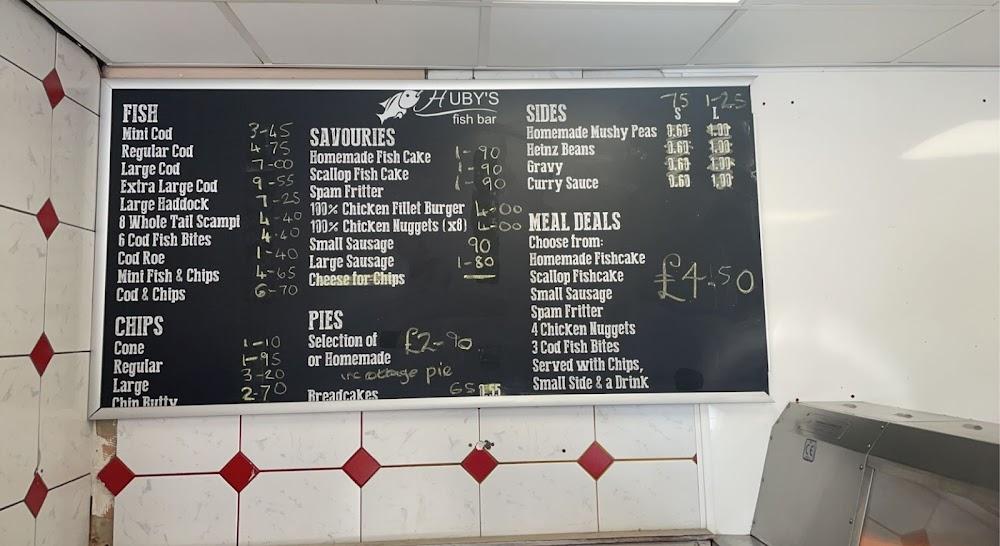 HUBY'S
fish bar
FISH
Mini Cod 3-45
Regular Cod 4-75
Large Cod 7-00
Extra Large Cod 9-55
Large Haddock 7-25
8 Whole Tail Scampi 4-40
6 Cod Fish Bites 4-40
Cod Roe 1-40
Mini Fish & Chips 4-65
Cod & Chips 6-70
CHIPS
Cone 1-10
Regular 1-95
Large 3-20
Chip Butty 2-70
SAVOURIES
Homemade Fish Cake 1-90
Scallop Fish Cake 1-90
Spam Fritter 1-90
100% Chicken Fillet Burger 4-00
100% Chicken Nuggets (x8) 4-00
Small Sausage 90
Large Sausage 1-80
Cheese for Chips
PIES
Selection of £2-90
or Homemade
inc cottage pie
Breadcakes 65 0.55
SIDES 75 1-25
S L
Homemade Mushy Peas 0.60 1.00
Heinz Beans 0.60 1.00
Gravy 0.60 1.00
Curry Sauce 0.60 1.00
MEAL DEALS
Choose from:
Homemade Fishcake
Scallop Fishcake £4.50
Small Sausage
Spam Fritter
4 Chicken Nuggets
3 Cod Fish Bites
Served with Chips,
Small Side & a Drink
CE